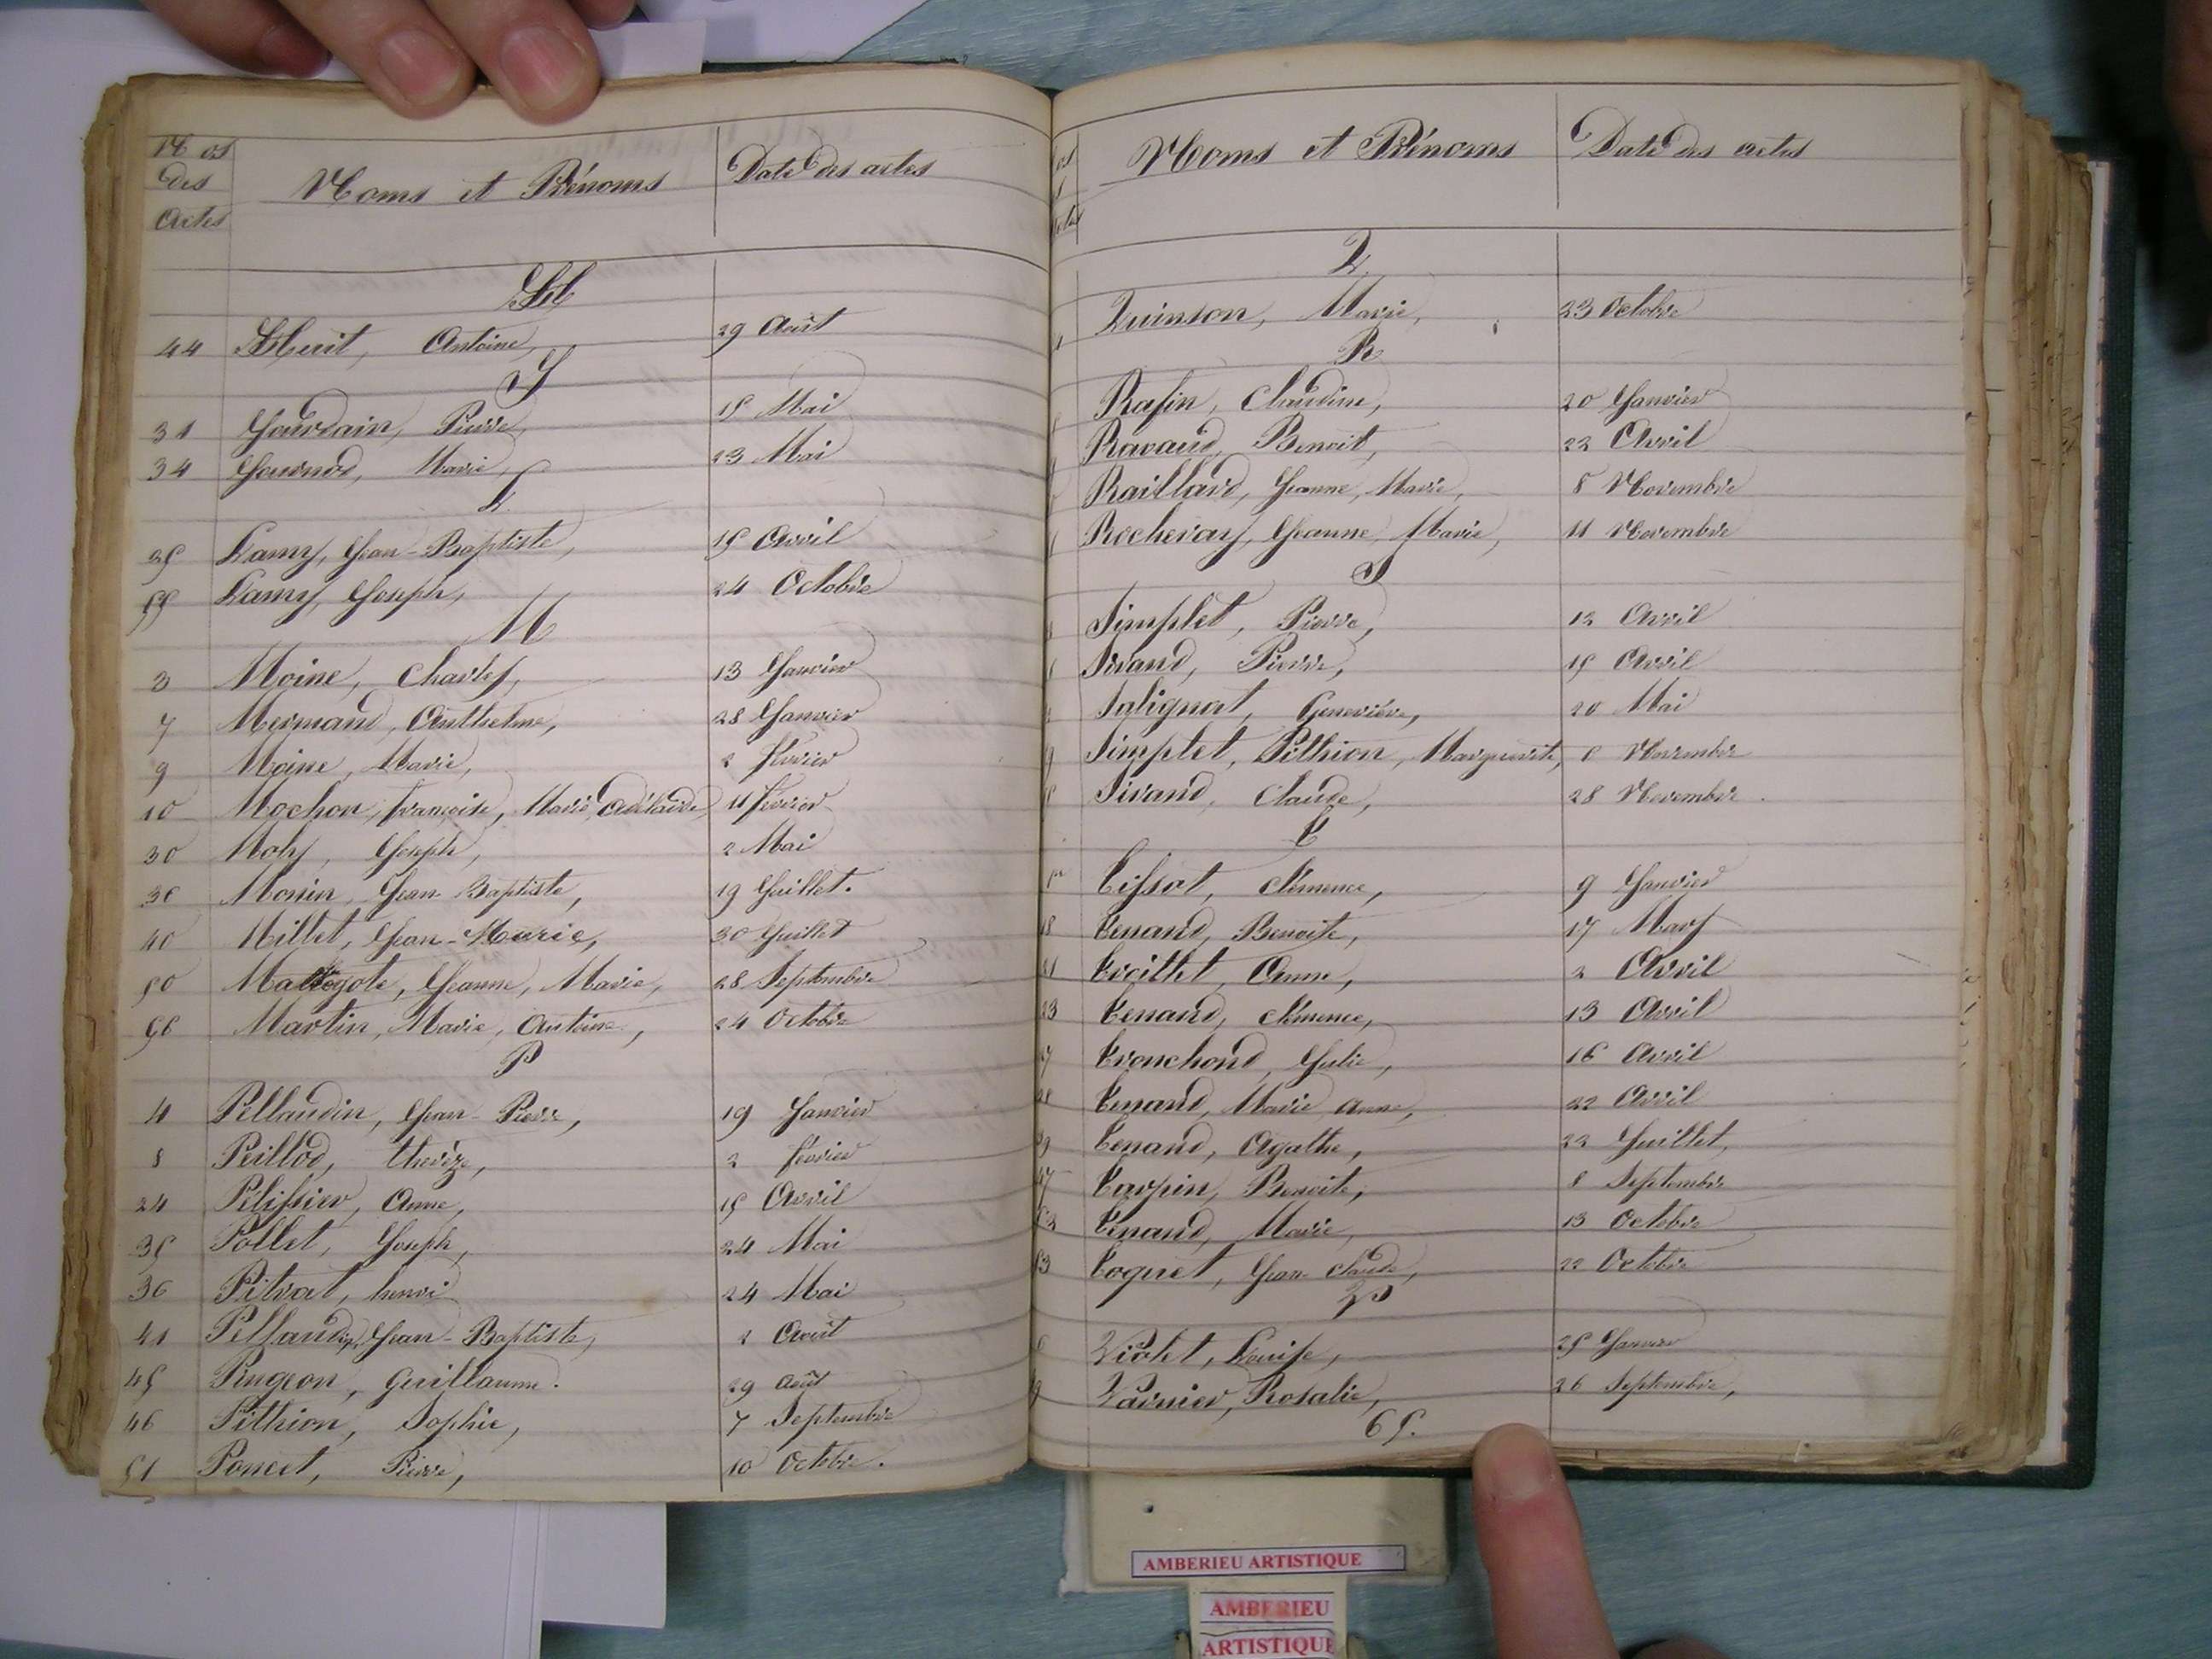 Nos
des
Actes
Noms et Prénoms
Date des actes
H
44 Huit, Antoine, 29 Août
J
31 Jourdain, Pierre, 15 Mai
34 Journod, Marie, 23 Mai
L
25 Lamy, Jean-Baptiste, 15 Avril
55 Lamy, Joseph, 24 Octobre
M
3 Moine, Charles, 13 Janvier
7 Mermand, Anthelme, 28 Janvier
9 Moine, Marie, 2 février
10 Mochon, françoise, Marie, Adélaïde, 11 février
30 Moly, Joseph, 2 Mai
38 Monin, Jean-Baptiste, 19 Juillet.
40 Millet, Jean-Marie, 30 Juillet
50 Jeanne, Marie, 28 Septembre
56 Martin, Marie, Antoine, 24 Octobre
P
4 Pellaudin, Jean-Pierre, 19 Janvier
8 Peillod, thérèze, 2 février
24 Pelissier, Anne, 15 Avril
35 Pollet, Joseph, 24 Mai
36 Pitrat, henri 24 Mai
41 Pellaudin, Jean-Baptiste, 2 Août
45 Pingeon, Guillaume. 29 Août
46 Pithion, Sophie, 7 Septembre
51 Poncet, Pierre, 10 Octobre.
Noms et Prénoms
Date des actes
Q
Quinson, Marie, 23 Octobre
R
Rafin, Claudine, 20 Janvier
Ravaud, Benoit, 22 Avril
Raillard, Jeanne, Marie, 8 Novembre
Rochevay, Jeanne, Marie, 11 Novembre
S
Simplet, Pierre, 12 Avril
Sirand, Pierre, 15 Avril
Salignat, Geneviève, 20 Mai
Simplet, Pithion, Marguerite, 8 Novembre
Sirand, Claude, 28 Novembre
T
1er Tissot, Clémence, 9 Janvier
18 Tenand, Benoite, 17 Mars
21 Troillet, Anne, 2 Avril
23 Tenand, Clémence, 13 Avril
27 Tronchond, Julie, 16 Avril
28 Tenand, Marie Anne, 22 Avril
39 Tenand, Agathe, 22 Juillet,
47 Tarpin, Benoite, 8 Septembre
52 Tenand, Marie, 13 Octobre
53 Toquet, Jean-Claude, 22 Octobre
V
6 Violet, Louise, 25 Janvier
9 Varnier, Rosalie, 26 Septembre,
65.
AMBERIEU ARTISTIQUE
AMBERIEU
ARTISTIQUE